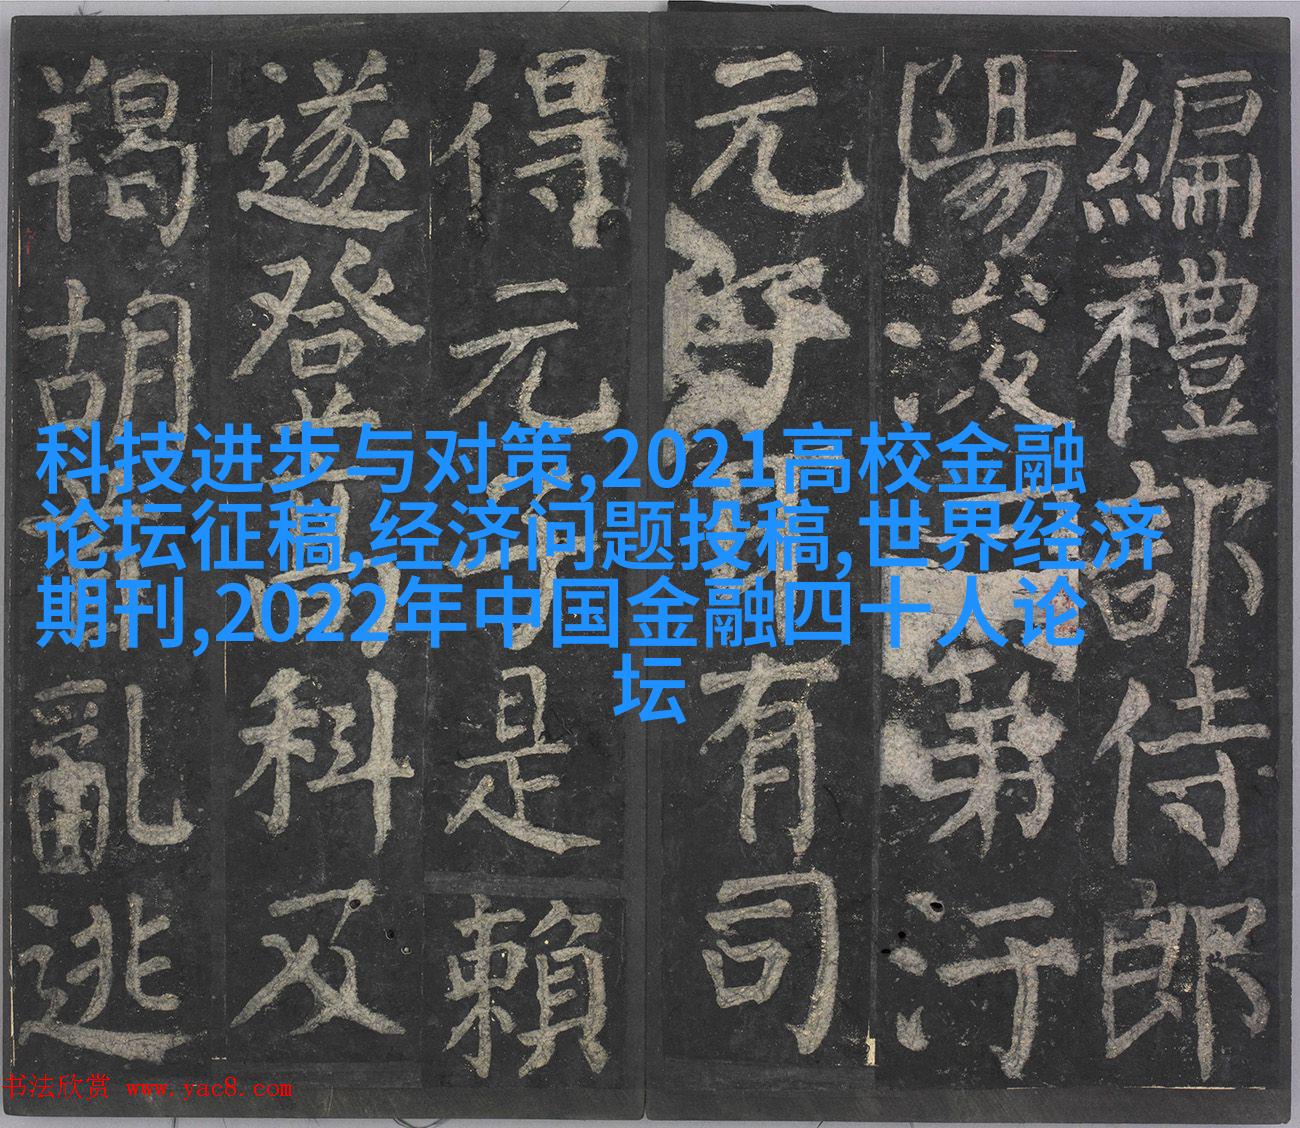 科技进步与对策,2021高校金融
论坛征稿,经济问题投稿,世界经济
期刊,2022年中国金融四十人论
坛
編禮部侍郎
陽浚第汙
元子有司
得元子是賴
遂登高科及
羯胡首亂逃
书法欣赏 www.yac8.com